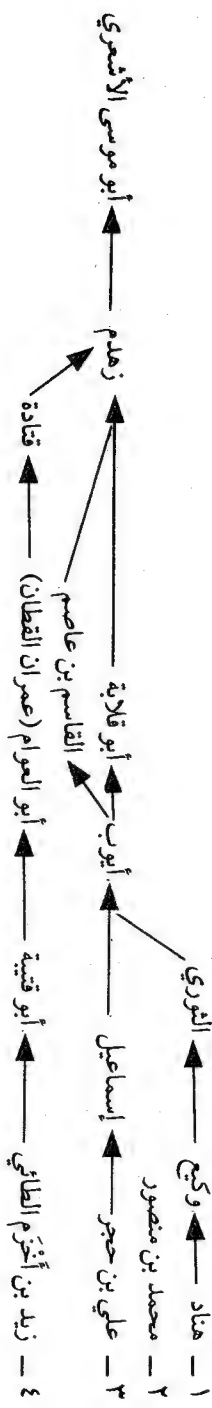 ١ – هناد وكيع الثوري
٢ – محمد بن منصور
٣ – علي بن حجر إسماعيل أيوب أبو قلابة زهدم أبو موسى الأشعري
القاسم بن عاصم
٤ – زيد بن أَخْزَم الطائي أبو قتيبة أبو العوام (عمران القطان) قتادة